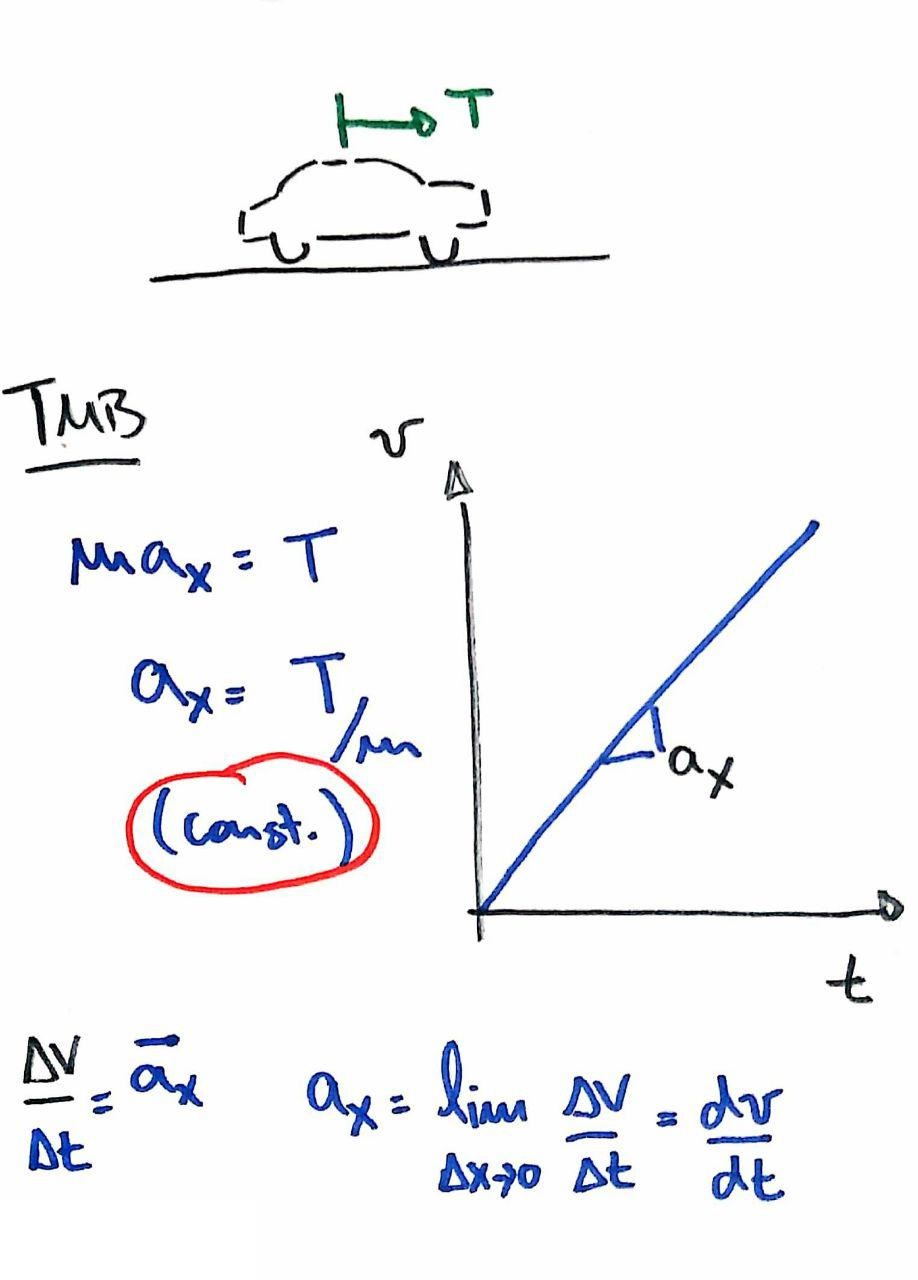 T
TMB
v
max = T
ax = T/m
(const.)
ax
t
ΔV/Δt = a̅x
ax = lim Δx→0 ΔV/Δt = dv/dt